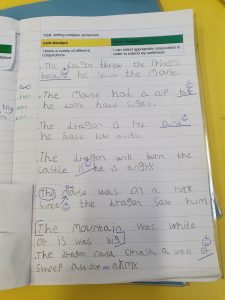 TGB: writing complex sentences
Gold Standard
I know a variety of different conjunctions
I can select appropriate conjunctions in order to extend my sentences
The dragon threw the Princess
because he saw the mouse.
The Mouse had a cup but
he has sugar.
The dragon is red and
he have two wings.
The dragon will burn the
castle if he is angry
The mouse was on a rock
since the dragon saw him
The Mountain was white
or is was big
The dragon could smash a wall or
sweep away an army